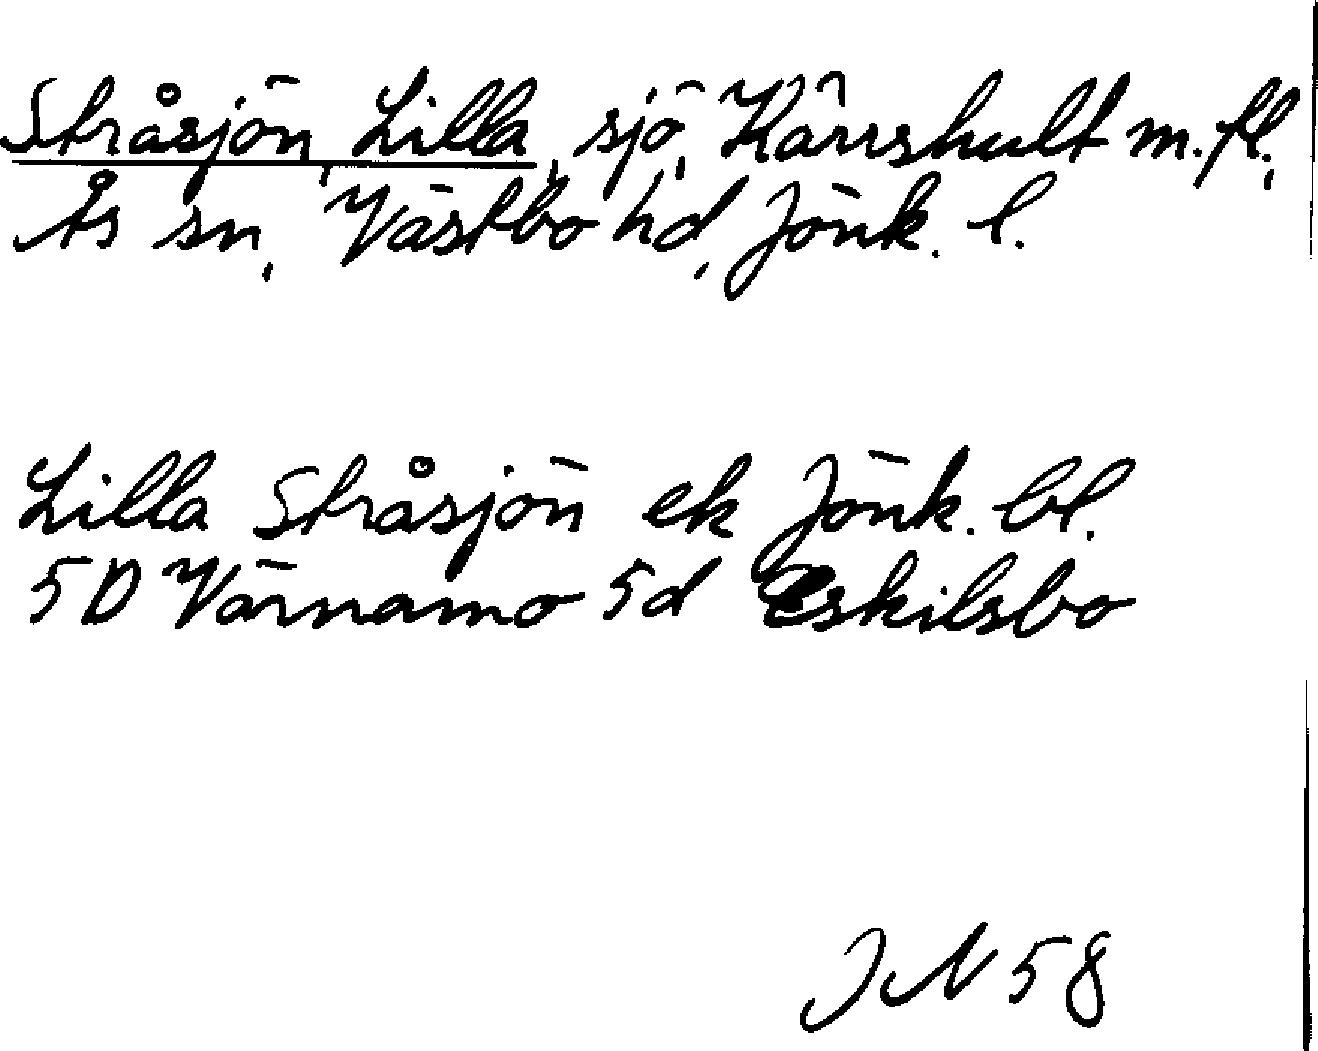 Stråsjön, Lilla, sjö, Kärrshult m.fl.,
Ås sn, Västbo hd, Jönk. l.
Lilla Stråsjön ek Jönk. bl.
5D Värnamo 5d Eskilsbo
JN 58